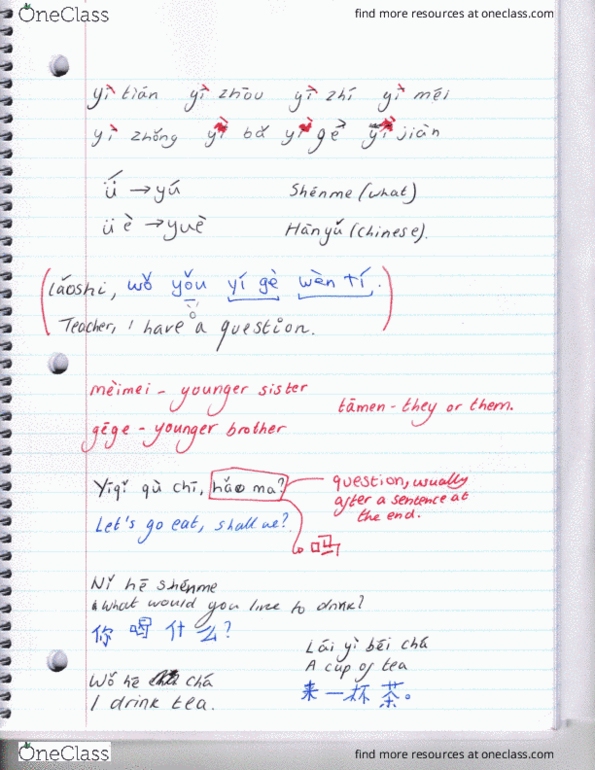 OneClass
find more resources at oneclass.com
yì tián yì zhōu yì zhí yì méi
yì zhǒng yì bǎ yì gè yì jiàn
ǘ → yú Shénme (what)
üè → yuè Hànyǔ (Chinese).
Lǎoshi, wǒ yǒu yí gè wèn tí.
Teacher, I have a question.
mèimei - younger sister
tāmen - they or them.
gēge - younger brother
Yīqǐ qù chī, hǎo ma?
question, usually
after a sentence at
the end.
Let's go eat, shall we?
吗
Nǐ hē shénme
What would you like to drink?
你 喝 什 么?
Lái yì bēi chá
A cup of tea
来 一 杯 茶。
Wǒ hē chá
I drink tea.
OneClass
find more resources at oneclass.com